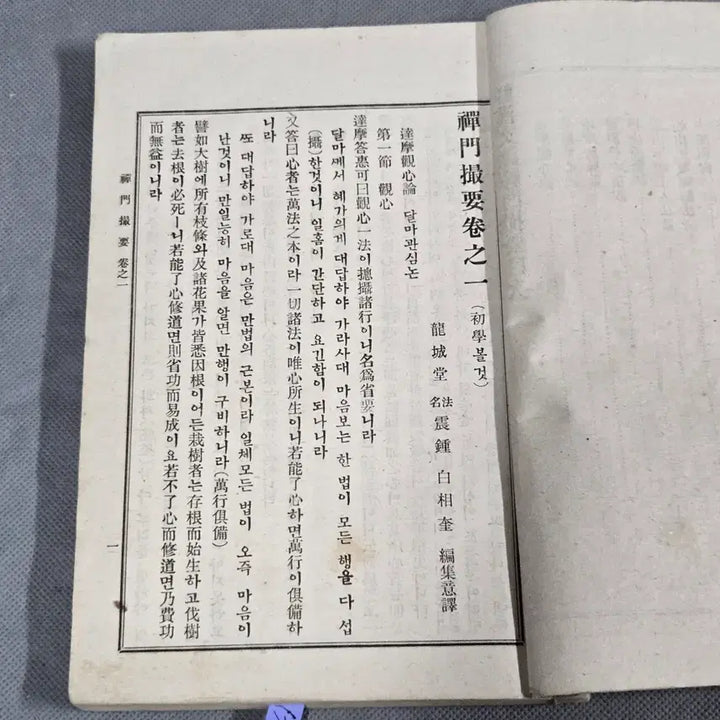 禪門撮要卷之一 (初學볼것)
龍城堂 法名 震鍾 白相奎 編集意譯
達摩觀心論 달마관심논
第一節 觀心
達摩答惠可曰觀心一法이摠攝諸行이니名爲省要니라
달마ᄭᅦ서 혜가의게 대답하야 가라사대 마음보는 한 법이 모든 행을 다 섭
(攝)한것이니 일홈이 간단하고 요긴함이 되나니라
又答曰心者는萬法之本이라一切諸法이唯心所生이니若能了心하면萬行이俱備하
니라
ᄯᅩ 대답하야 가로대 마음은 만법의 근본이라 일체모든 법이 오즉 마음이
난것이니 만일능히 마음을 알면 만행이 구비하니라(萬行俱備)
譬如大樹에所有枝條와及諸花果가皆悉因根이어든栽樹者는存根而始生하고伐樹
者는去根이必死ㅣ니若能了心修道면則省功而易成이요若不了心而修道면乃費功
而無益이니라
禪門撮要 卷之一
一